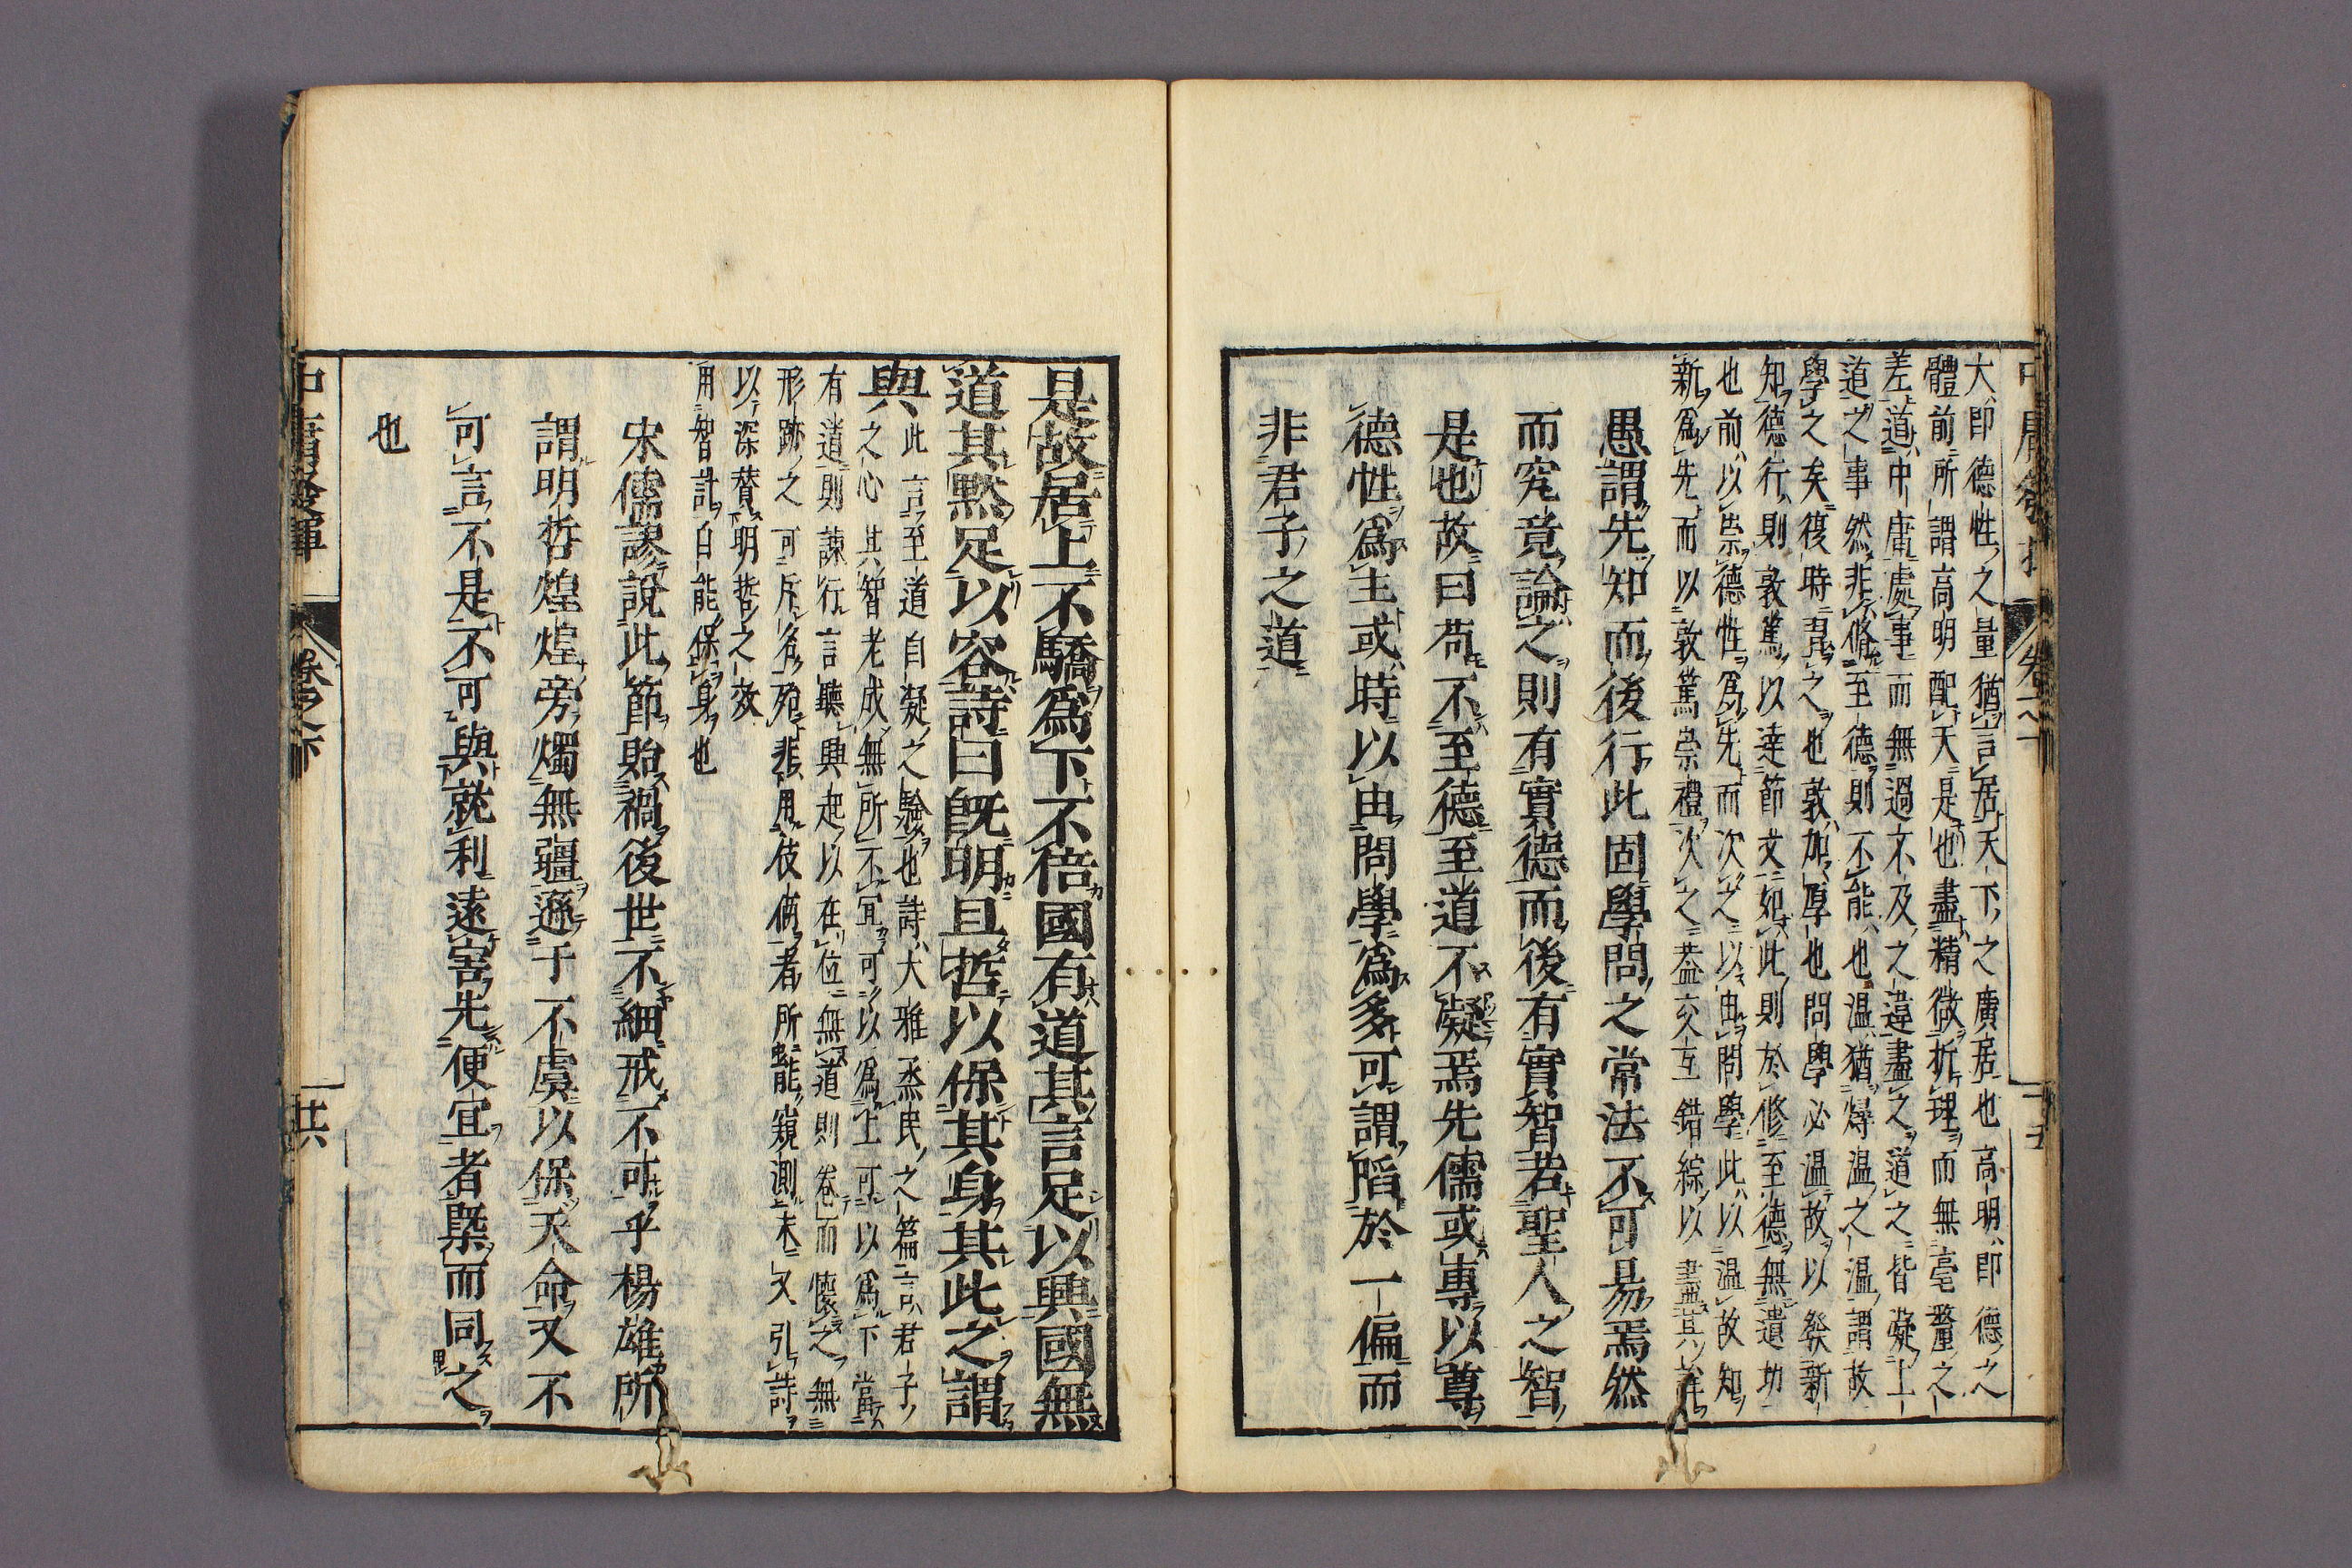 大即德性之量猶言居天下之廣居也高明即德之
體前所謂高明配天是也盡精微析理而無毫釐之
差道中庸處事而無過不及之違盡之道之皆凝上
道之事然非脩至德則不能也温猶燖温之温謂故
學之矣復時習之也敦加厚也問學必温故以發新
知德行則敦篤以達節文如此則於修至德無遺功
也前以崇德性爲先而次之以由問學此以温故知
新爲先而以敦篤崇禮次之葢交互錯綜以盡其詳
愚謂先知而後行此固學問之常法不可易焉然
而究竟論之則有實德而後有實智若聖人之智
是也故曰苟不至德至道不凝焉先儒或專以尊
德性爲主或時以由問學爲多可謂䧟於一偏而
非君子之道
是故居上不驕爲下不倍國有道其言足以興國無
道其默足以容詩曰旣明且哲以保其身其此之謂
與
此言至道自凝之驗也詩大雅烝民之篇言君子
之心其智老成無所不宜可以爲上可以爲下當
有道則諫行言聽興起以在位無道則卷而懷之無
形跡之可斥名殆非用伎倆者所能窺測末又引詩
以深賛明哲之效
用智計自能保身也
宋儒謬說此節貽禍後世不細戒不可乎楊雄所
謂明哲煌煌旁燭無疆遜于不虞以保天命又不
可言不是不可與就利遠害先便宜者槩而同之
也
中庸發揮
卷之下
廿六